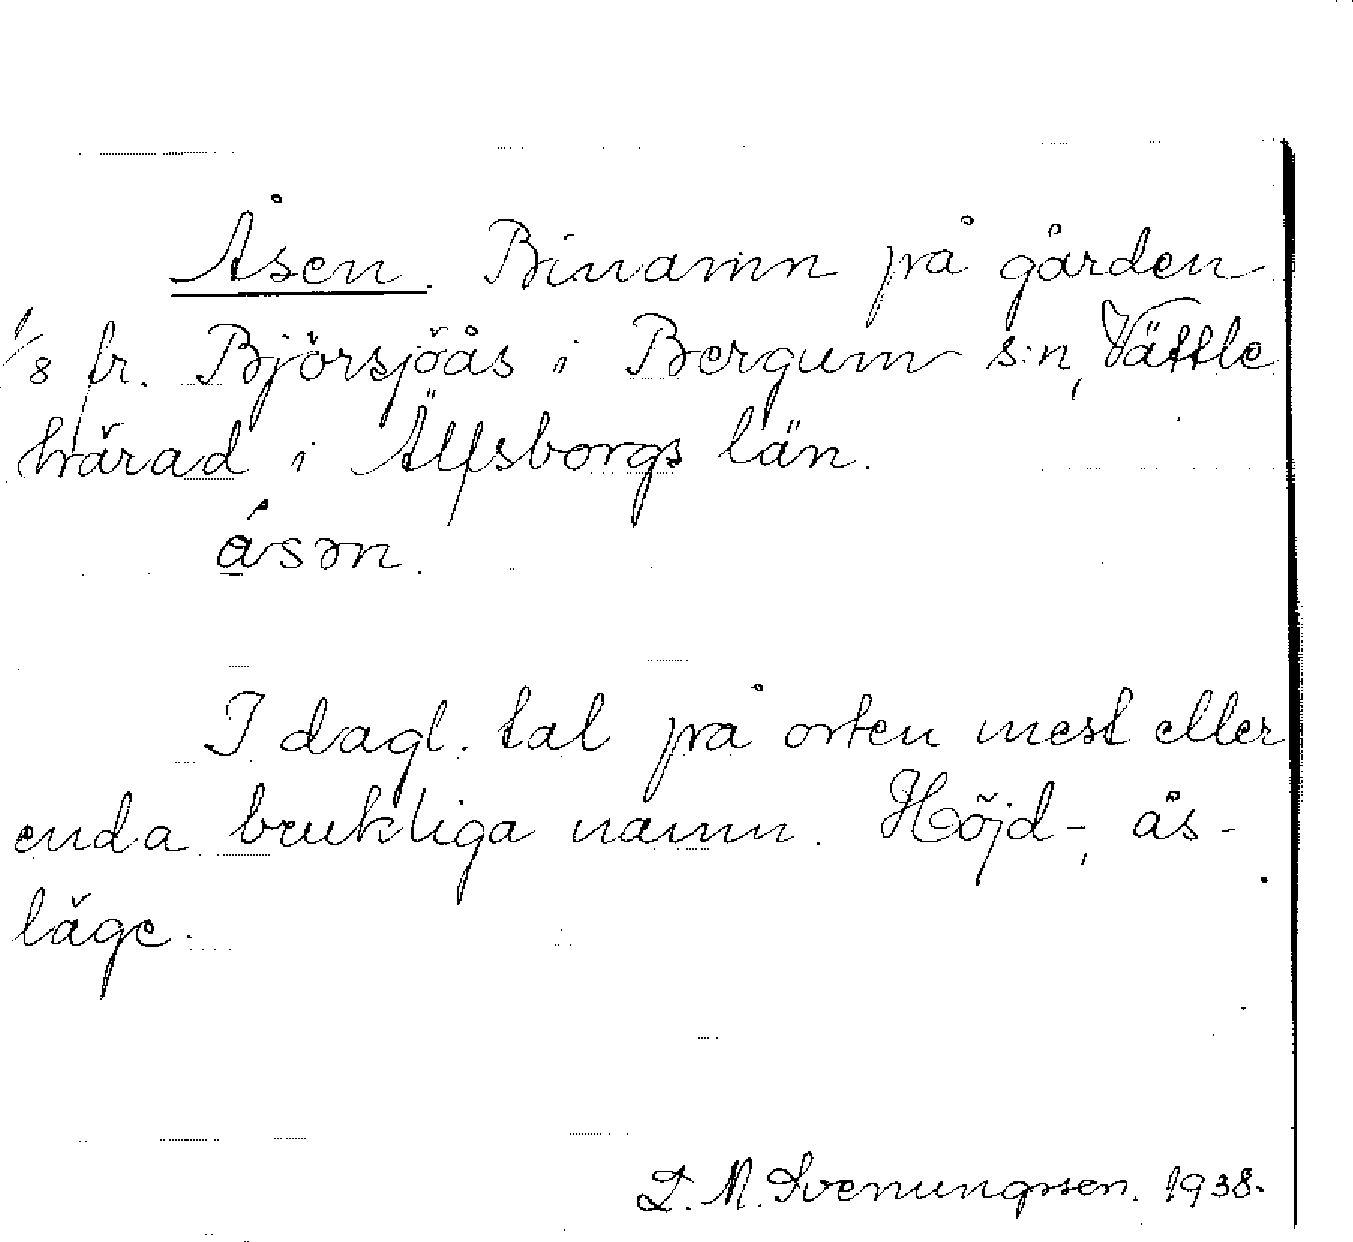 Åsen. Binamn på gården
1/8 fr. Björsjöås i Bergum s:n, Vättle
härad i Älfsborgs län.
åsən.
I dagl. tal på orten mest eller
enda brukliga namn. Höjd-, ås-
läge.
D. M. Svenungsson. 1938.